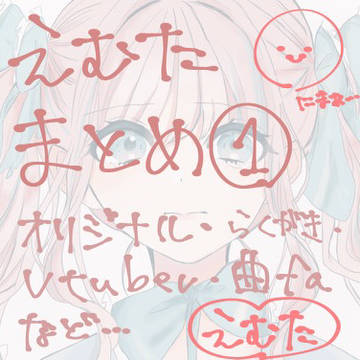 えむた
まとめ①
にまぁ…
オリジナル・らくがき・
Vtuber・曲fa
など…
えむた